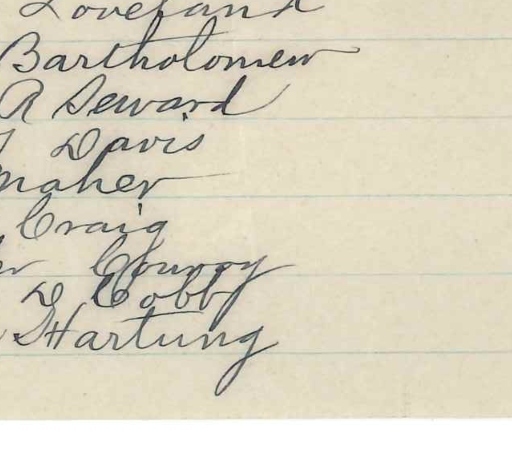 Loveland
Bartholomew
A Seward
Davis
maher
Craig
Conroy
D Cobb
Hartung